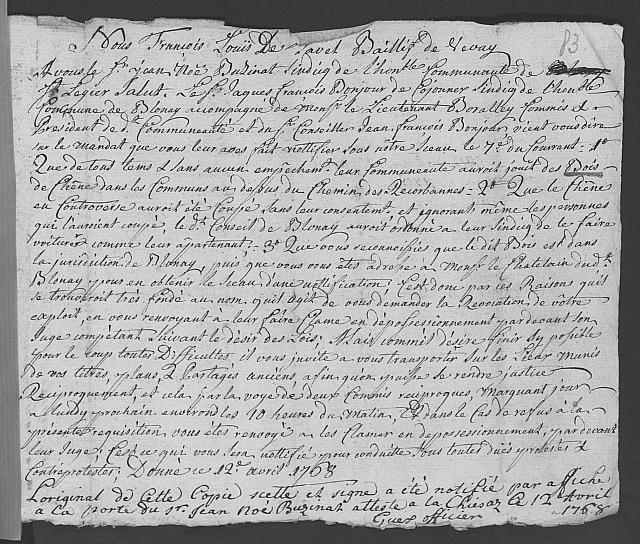 83.
Nous François Louis De Tavel Baillif de Vevay
A vous le Sr. jean Noé Buzinat Sindiq de l'honble Communauté de
St Legier Salut, Le Sr. Jaques François Bonjour de Cojonnex Sindiq de l'honble
Commune de Blonay accompagné de Monsr. le Lieutenant Boralley Commis &
President de dt. Communeauté et du Sr. Conseiller Jean François Bonjour vient vous dire
sur le mandat que vous leur avés fait nottifier sous notre Sceau le 7e. du Courrant = 1o
Que de tous tems & sans aucun empêchent. leur Communeaute auroit jouit des Bois
de Chêne dans les Communs au dessus du Chemin des Recorbannes = 2o Que le Chêne
en Controverse auroit été Coupé sans leur consentemt. et ignorant même les personnes
qui l'auroient coupé, le dt. Conseil de Blonay auroit ordonné a leur Sindiq de le faire
voiturer comme leur apartenant = 3o Que vous reconnoissés que le dit Bois est dans
la jurisdiction de Blonay, puis que vous vous êtes adressé à Monsr. le Chatelain du dt.
Blonay pour en obtenir le Sceau d'une nottification; C'est donc par ces Raisons qu'il
se trouveroit très fondé au nom qu'il agit de vous demander la Revocation de votre
exploit en vous renvoyant a leur faire Clame en dépossessionnement pardevant son
Juge compétant suivant le désir des Loix; Mais commis désire finir s'y possible
pour le coup toutes Difficultés il vous invite a vous transporter sur les Lieux munis
de vos titres, plans, & Partages anciens, afin qu'on puisse se rendre justice
Réciproquement, et cela par la voye de deux Commis reciproques, Marquant jour
a Lundy prochain environd les 10 heures du Matin, Et dans le Cas de refus à la
présente requisition vous êtes renvoyé a les Clamer en dépossessionnement, pardevant
leur Juge; C'est ce qui vous sera nottifié pour conduitte Sous toutes dues protestes &
Contreprotestes; Donné ce 12e. avril 1768
L'original de Cette Copie scellé et signé a été notifié par affiche
a la porte du Sr. Jean Noé Buzinat atteste a la Chiésaz ce 12 Avril
1768
Guex officier